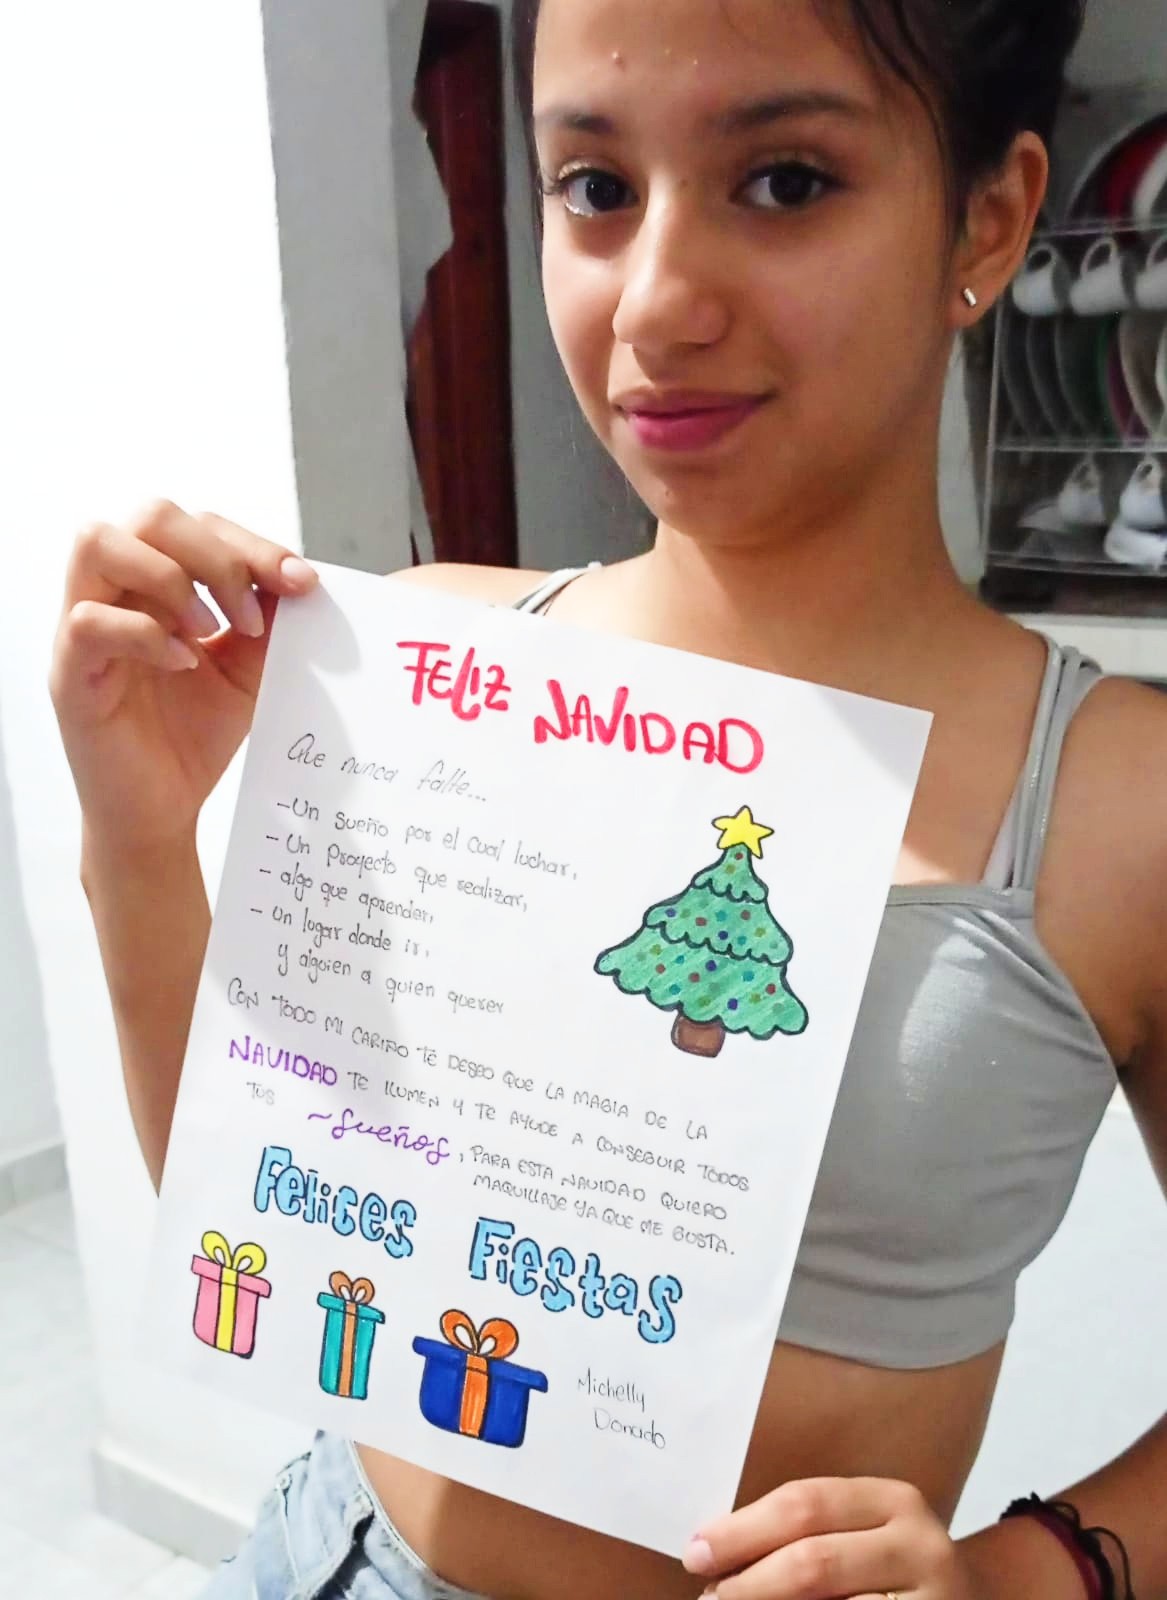 FELIZ NAVIDAD
Que nunca falte...
-Un sueño por el cual luchar,
- Un proyecto que realizar,
- algo que aprender,
- un lugar donde ir,
y alguien a quien querer
CON TODO MI CARIÑO TE DESEO QUE LA MAGIA DE LA
NAVIDAD TE ILUMEN Y TE AYUDE A CONSEGUIR TODOS
TUS ~Sueños, PARA ESTA NAVIDAD QUIERO
MAQUILLAJE YA QUE ME GUSTA.
Felices Fiestas
Michelly
Donado